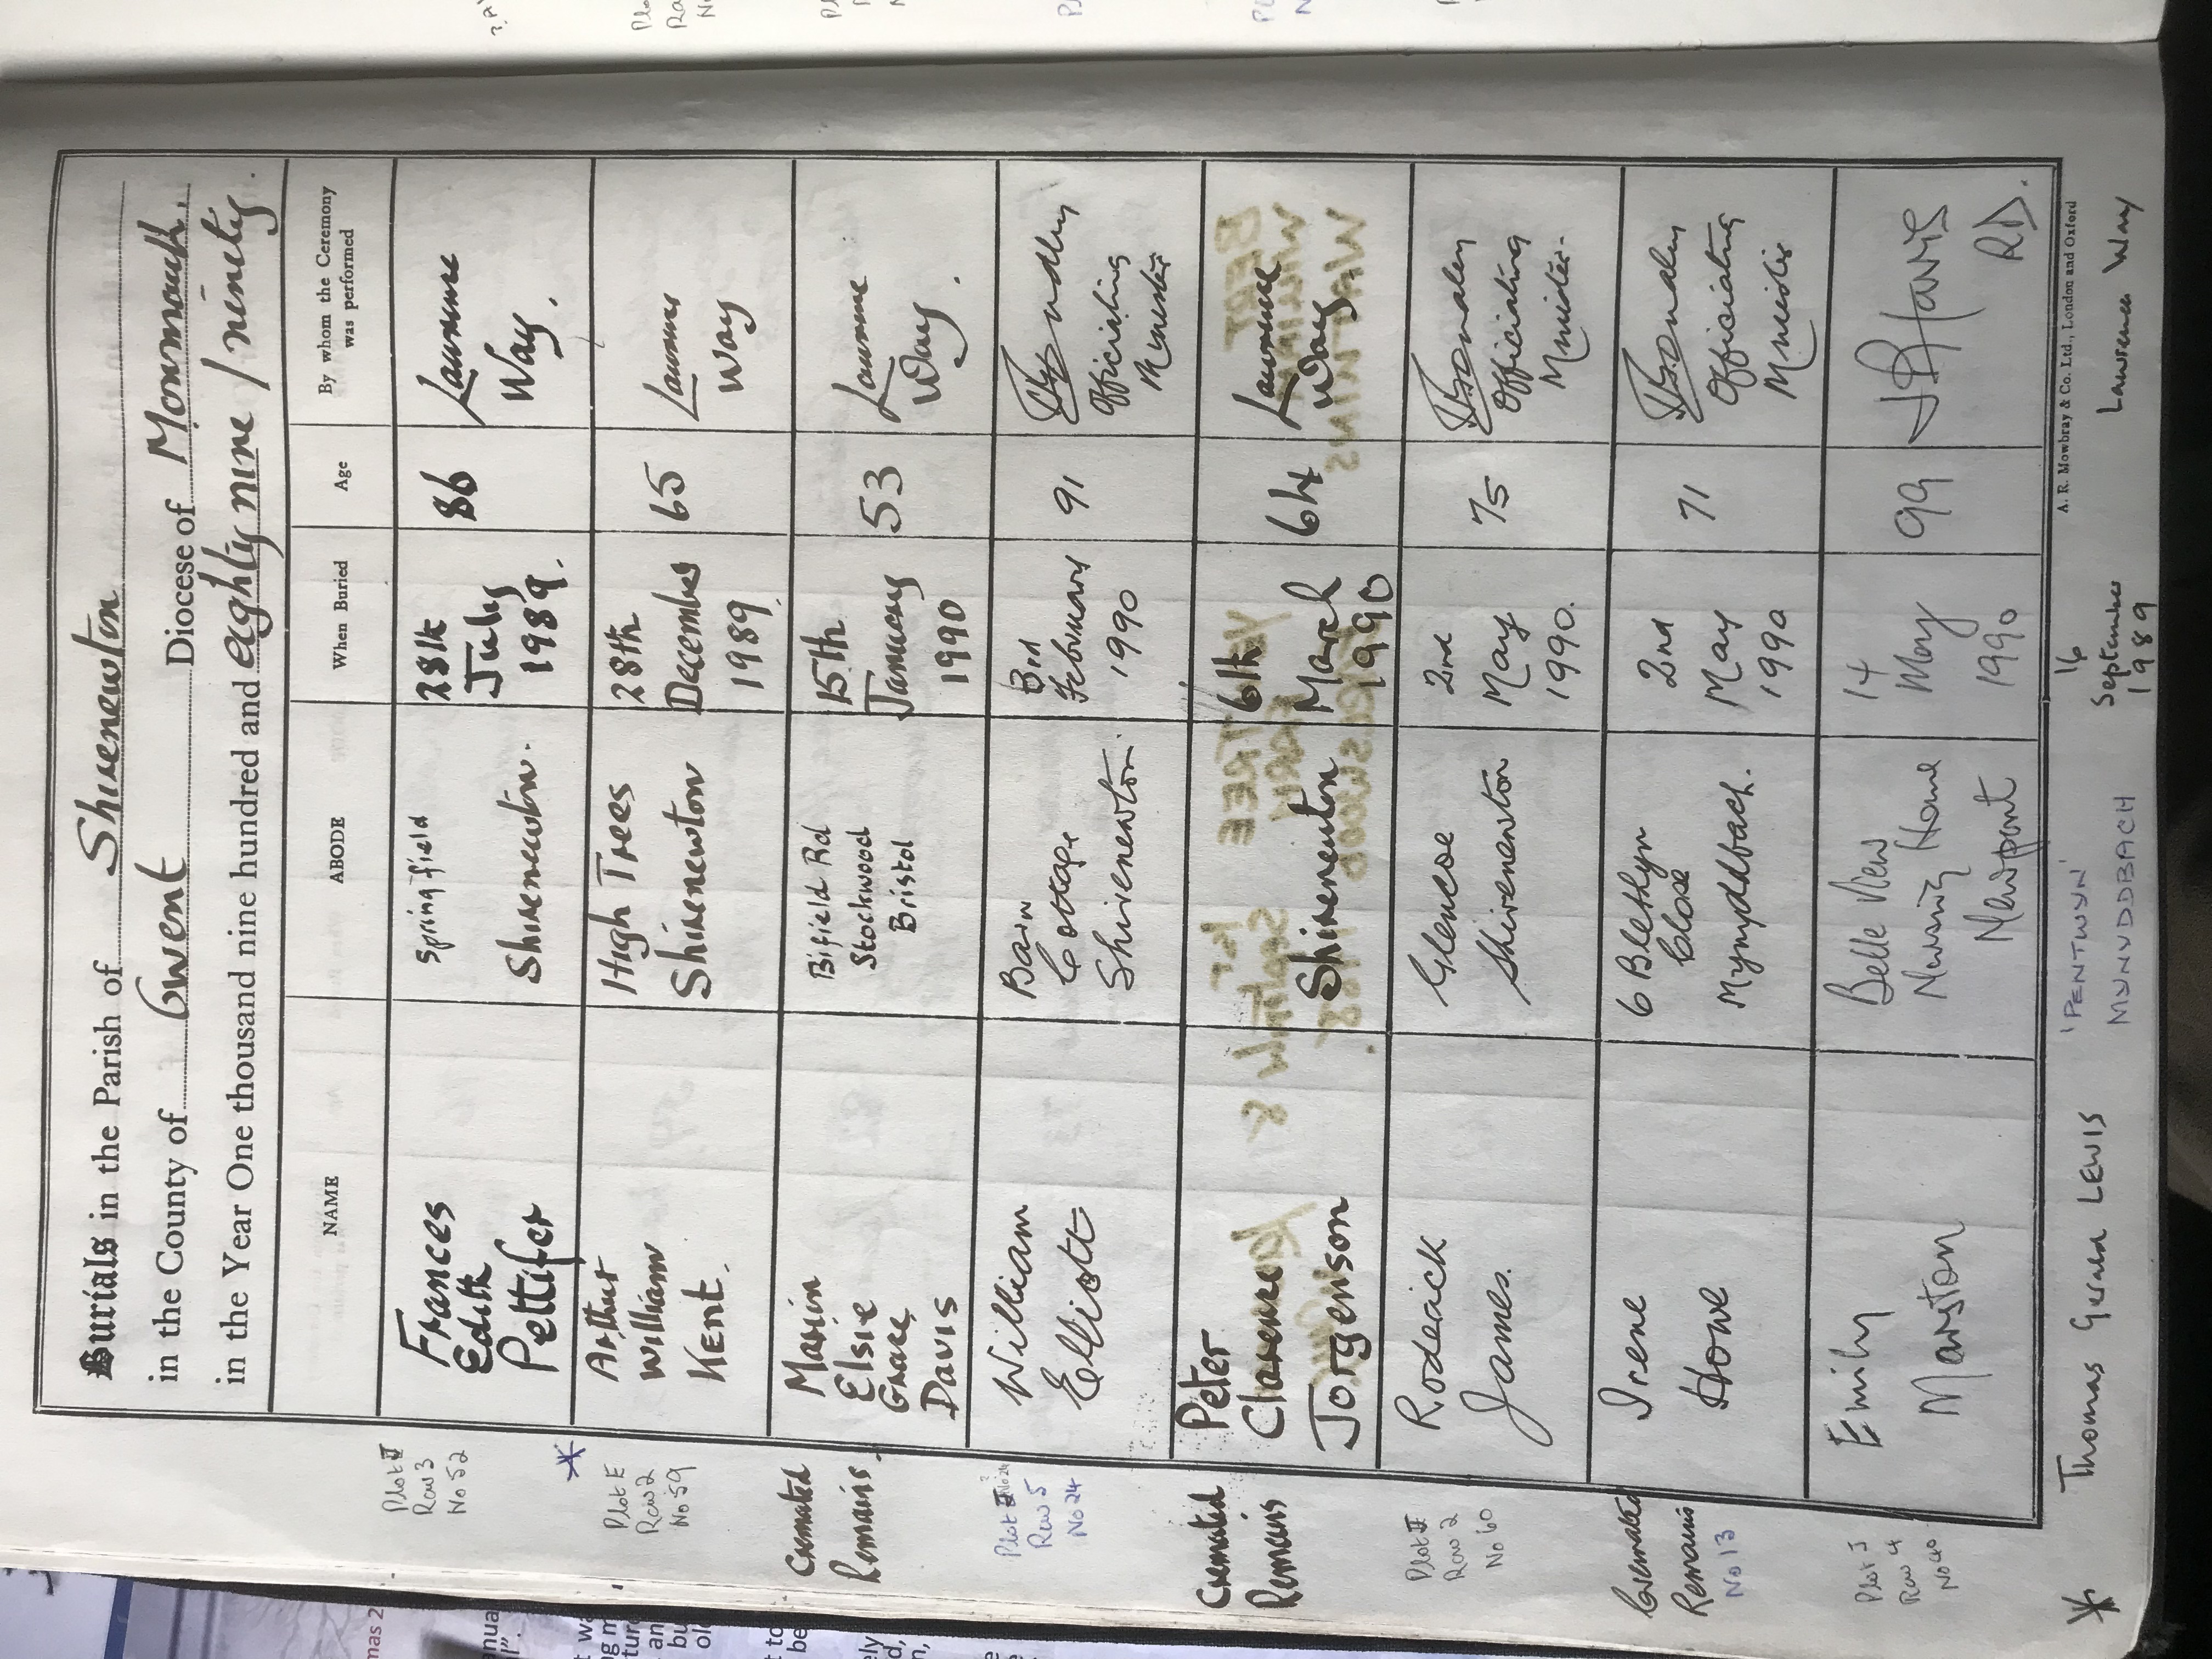 Burials in the Parish of Shirenewton
in the County of Gwent Diocese of Monmouth.
in the Year One thousand nine hundred and eighty nine / ninety.
NAME ABODE When Buried Age By whom the Ceremony was performed
Plot
Row 3
No 52
Frances
Edith
Pettifer
Springfield
Shirenewton.
28th
July
1989.
86
Lawrence
Way.
*
Plot E
Row 2
No 59
Arthur
William
Kent.
High Trees
Shirenewton
28th
December
1989.
65
Lawrence
Way
Cremated
Remains
Marion
Elsie
Grace
Davis
Bifield Rd
Stockwood
Bristol
15th
January
1990
53
Lawrence
Way.
Plot
Row 5
No 24
William
Elliott
Barn
Cottage
Shirenewton.
3rd
February
1990
91
Officiating
Minister
Cremated
Remains
Peter
Clarence
Jorgenson
Shirenewton
6th
March
1990
64
Lawrence
Way
Plot
Row 2
No 60
Roderick
James.
Glencoe
Shirenewton
2nd
May
1990.
75
Officiating
Minister.
Cremated
Remains
No 13
Irene
Howe
6 Blethyn
Close
Mynyddbach.
2nd
May
1990
71
Officiating
Minister
Plot J
Row 4
No 40
Emily
Marston
Belle View
Nursing Home
Newport
14
May
1990
99
RD.
A. R. Mowbray & Co. Ltd., London and Oxford
* Thomas Gerald LEWIS
'PENTWYN'
MYNYDDBACH
16
September
1989
Lawrence Way